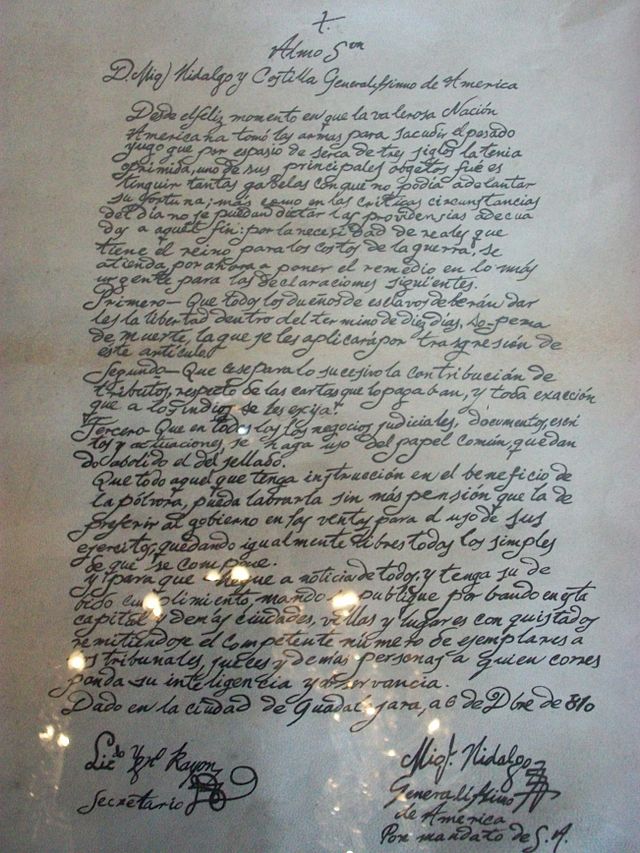 +.
Almo Sor
D. Migl Hidalgo y Costilla Generalissimo de America
Desde el feliz momento en que la valerosa Nación
America ha tomó las armas para sacudir el pesado
yugo que por espasio de serca de tres siglos la tenia
oprimida, uno de sus principales obgetos fué es
tinguir tantas gabelas con que no podía adelantar
su fortuna; mas como en las criticas circunstancias
del día no se puedan dictar las providensias adecua
das a aquel fin: por la necesidad de reales que
tiene el reino para los costos de la guerra, se
atienda por ahora a poner el remedio en lo más
urgente para las declaraciones siguientes.
Primero— Que todos los dueños de esclavos deberán dar
les la libertad dentro del termino de diez días, so pena
de muerte, la que se les aplicará por trasgresión de
este articulo.
Segundo— Que cese para lo sucesivo la contribución de
tributos, respecto de las castas que lo pagaban, y toda exacción
que a los indios se les exija.
Tercero— Que en todos los negocios judiciales, documentos, escri
tos y actuaciones, se haga uso del papel común, quedan
do abolido el del sellado.
Que todo aquel que tenga instrucción en el beneficio de
la pólvora, pueda labrarla sin más pensión que la de
preferir al gobierno en las ventas para el uso de sus
ejercitos, quedando igualmente libres todos los simples
de que se compone.
y para que llegue a noticia de todos, y tenga su de
bido cumplimiento, mando se publique por bando en esta
capital y demás ciudades, villas y lugares conquistados
remitiendose el competente número de ejemplares a
los tribunales, jueces y demás personas a quien corres
ponda su inteligencia y observancia.
Dado en la ciudad de Guadalajara, a 6 de Dbre de 810
Licdo Rayon
Secretario
Migl. Hidalgo
Generalissimo
de America
Por mandato de S. A.